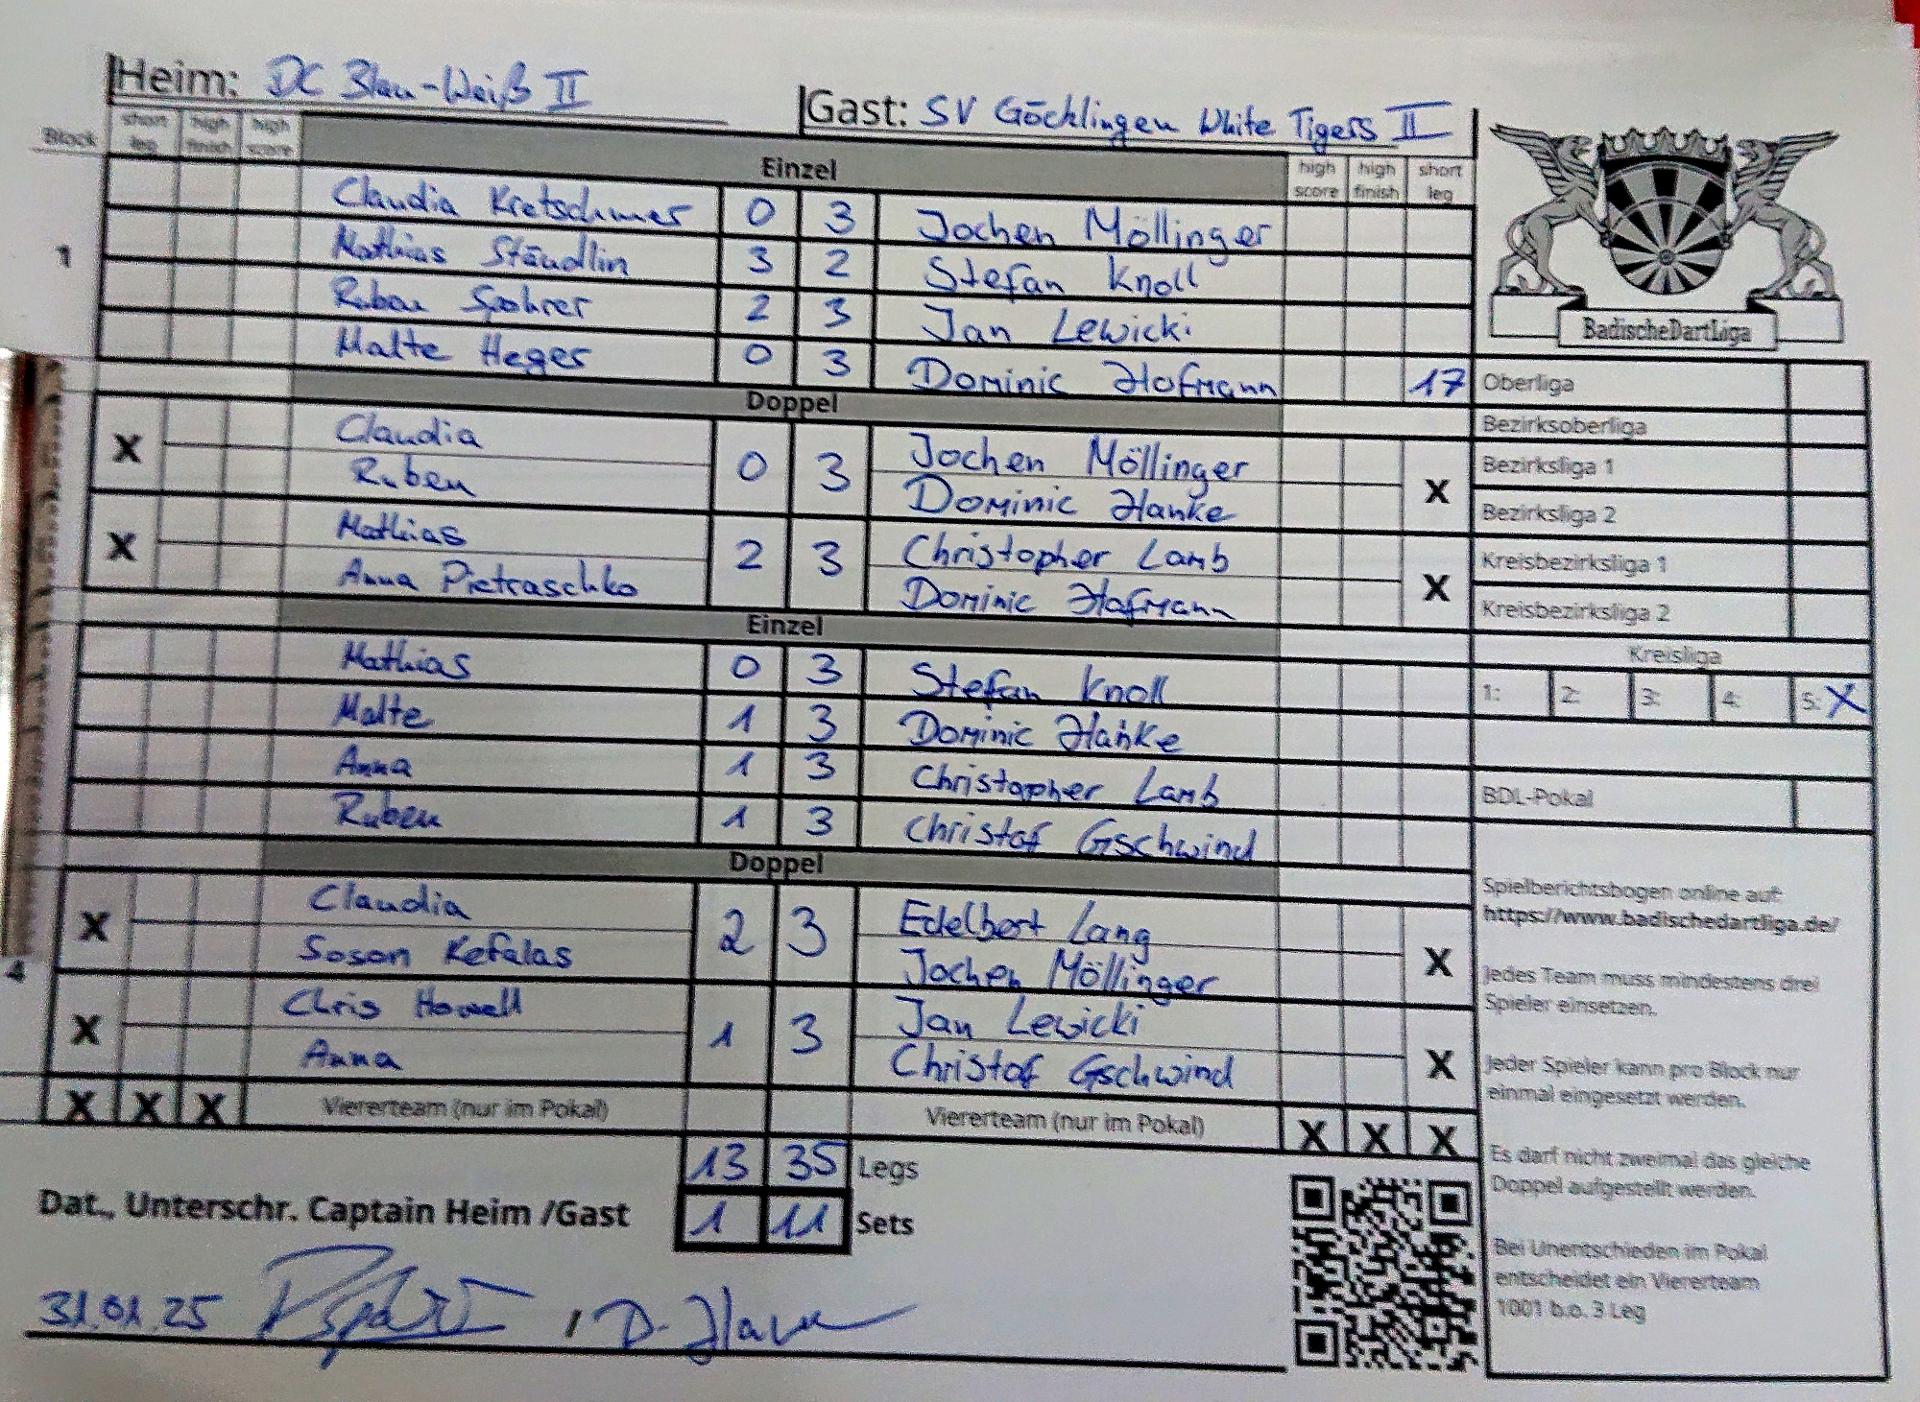 Heim: DC Blau-Weiß II Gast: SV Göcklingen White Tigers II
Block short leg high finish high score Einzel high score high finish short leg
Claudia Kretschmer 0 3 Jochen Möllinger
1 Mathias Stäudlin 3 2 Stefan Knoll
Ruben Spohrer 2 3 Jan Lewicki
Malte Heger 0 3 Dominic Hofmann 17
BadischeDartLiga
Doppel
X Claudia 0 3 Jochen Möllinger X
Ruben Dominic Hanke
X Mathias 2 3 Christopher Lamb X
Anna Pietraschko Dominic Hofmann
Einzel
Mathias 0 3 Stefan Knoll
Malte 1 3 Dominic Hanke
Anna 1 3 Christopher Lamb
Ruben 1 3 Christof Gschwind
Doppel
X Claudia 2 3 Edelbert Lang X
4 Soson Kefalas Jochen Möllinger
X Chris Howell 1 3 Jan Lewicki X
Anna Christof Gschwind
X X X Viererteam (nur im Pokal) Viererteam (nur im Pokal) X X X
13 35 Legs
1 11 Sets
Dat., Unterschr. Captain Heim /Gast
31.01.25 , D. Hanke
Oberliga
Bezirksoberliga
Bezirksliga 1
Bezirksliga 2
Kreisbezirksliga 1
Kreisbezirksliga 2
Kreisliga
1: 2: 3: 4: 5: X
BDL-Pokal
Spielberichtsbogen online auf:
https://www.badischedartliga.de/
Jedes Team muss mindestens drei
Spieler einsetzen.
Jeder Spieler kann pro Block nur
einmal eingesetzt werden.
Es darf nicht zweimal das gleiche
Doppel aufgestellt werden.
Bei Unentschieden im Pokal
entscheidet ein Viererteam
1001 b.o. 3 Leg